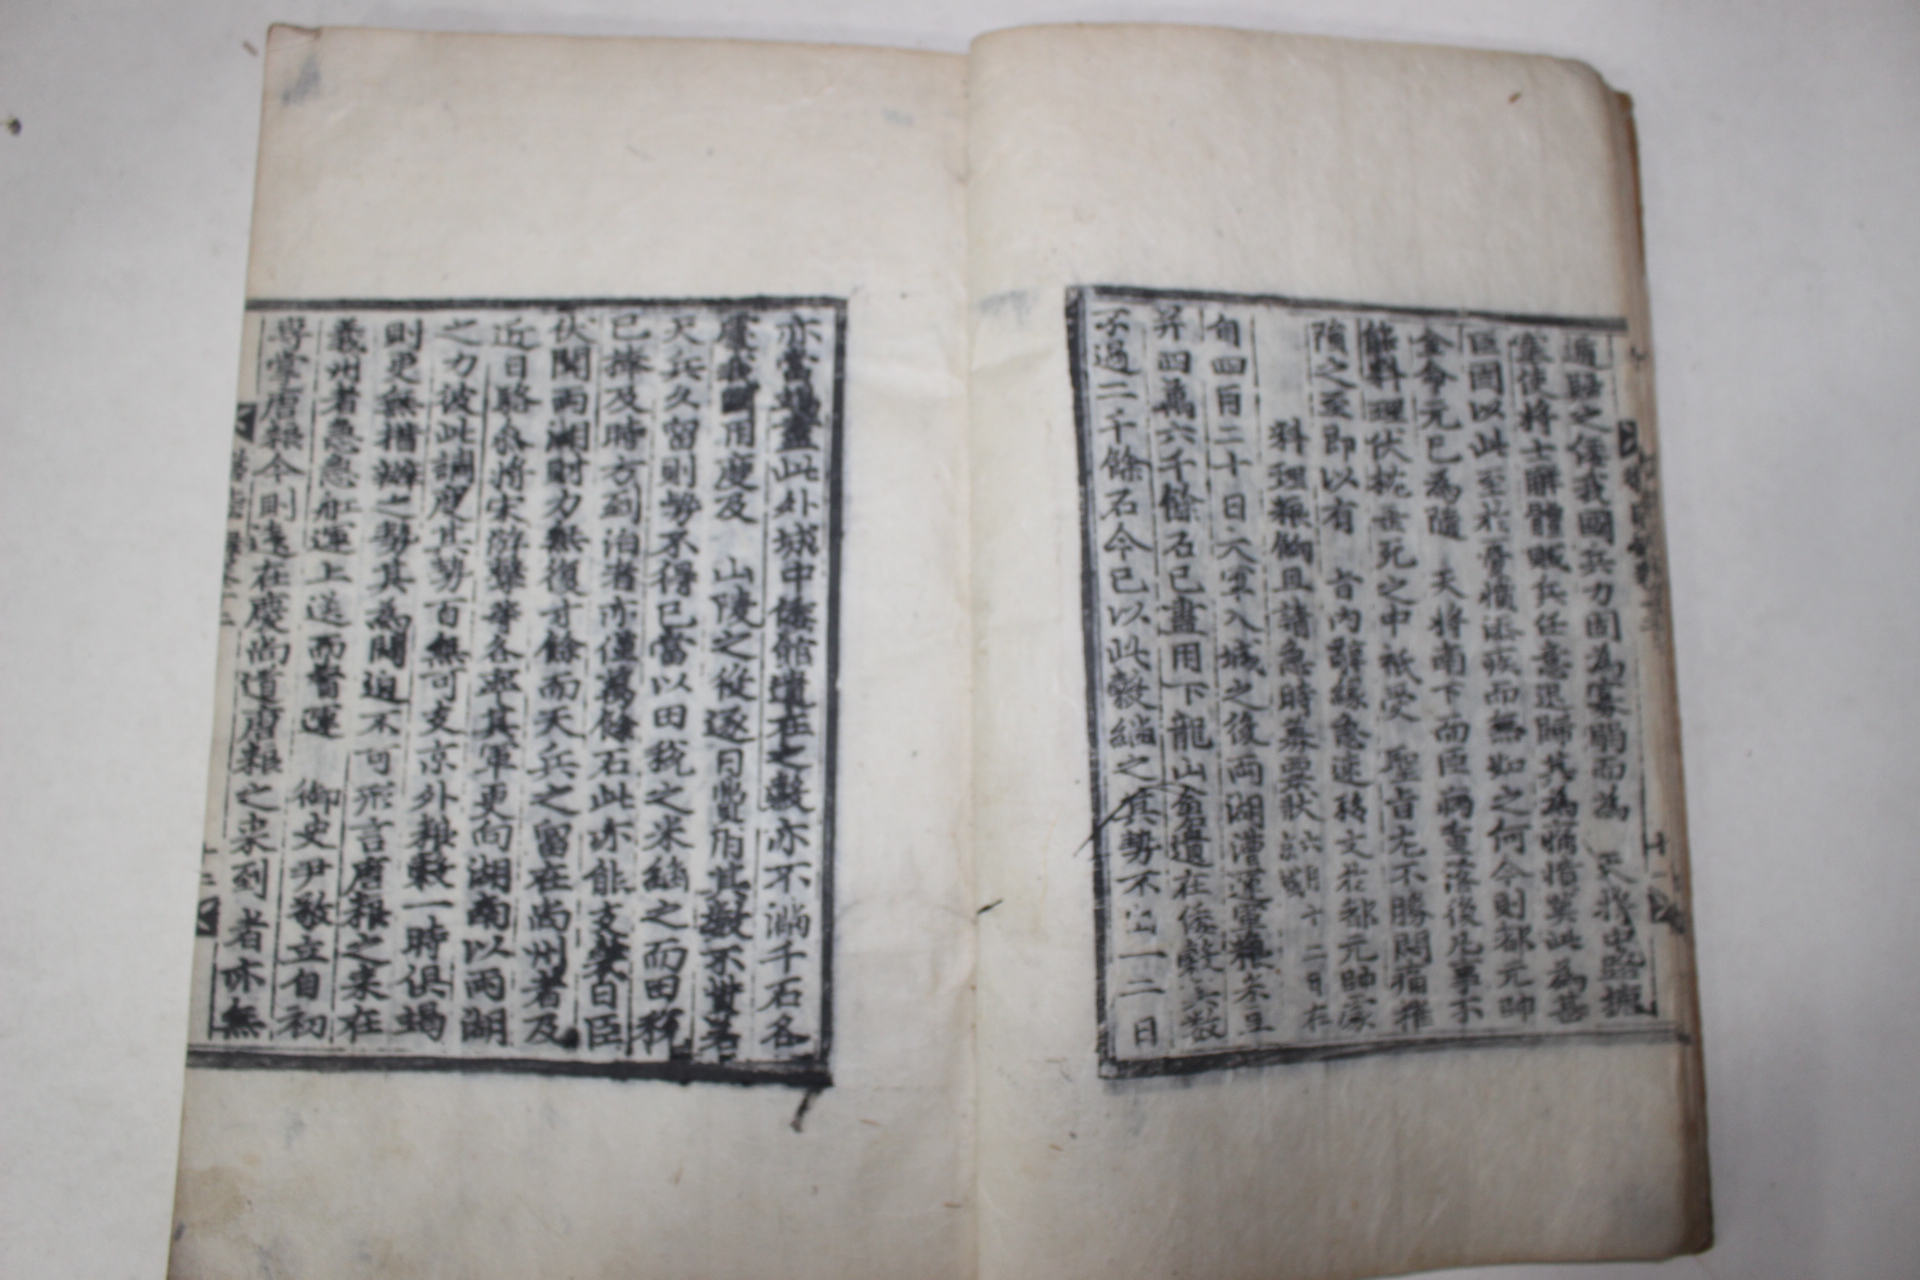 遁賊之後我國兵力固為寡弱而為 天將电路擁
塞使將士解體賊兵任意退歸尤為痛惜莫此為甚
臣固以此至於膏憤添疾而無如之何今則都元帥
金命元已為隨 天將南下而臣病重落後凡事不
能料理伏枕垂死之中祇受 聖旨尤不勝悶痛推
隕之至即以有 旨內辭緣急速移文於都元帥處
料理粮餉且請急時募粟狀 六月十二日在
自四月二十日大軍入城之後両湖漕運軍粮米豆
并四萬六千餘石已盡用下龍山倉遺在倭穀六数
不過二千餘石今已以此穀繼之其勢不出一二日
亦當 盡此外城中倭館遺在之穀亦不滿千石各
用度及 山陵之後逐日費用其數不貲若
天兵久留則勢不得已當以田稅之米繼之而田稅
已捧及時方到泊者亦僅萬餘石此亦能支 日臣
伏聞両湖財力無復才餘而天兵之留在尚州者及
近日駱 將宋 等各率其軍更向湖南以両湖
之力彼此調度其勢百無可支京外雜穀一時俱竭
則更無措辦之勢其為悶迫不可形言唐粮之來在
義州者急急舡運上送而督運 御史尹敬立自初
專掌唐粮今則遠在慶尚道唐粮之來到者亦無